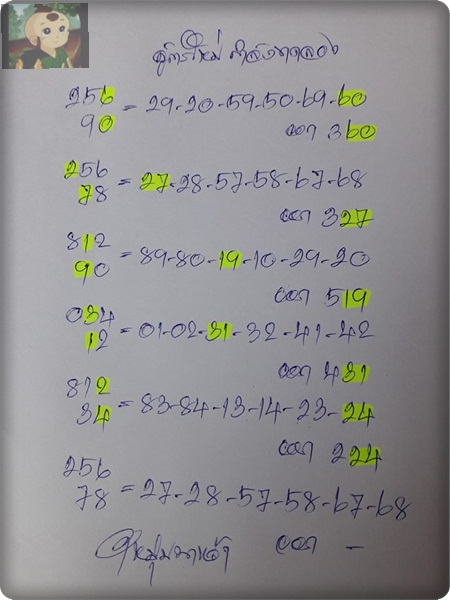 สูตรใหม่ กำลังทดลอง
256
90 = 29-20-59-50-69-60
ออก 360
256
78 = 27-28-57-58-67-68
ออก 327
812
90 = 89-80-19-10-29-20
ออก 519
034
12 = 01-02-31-32-41-42
ออก 431
812
34 = 83-84-13-14-23-24
ออก 224
256
78 = 27-28-57-58-67-68
ออก -